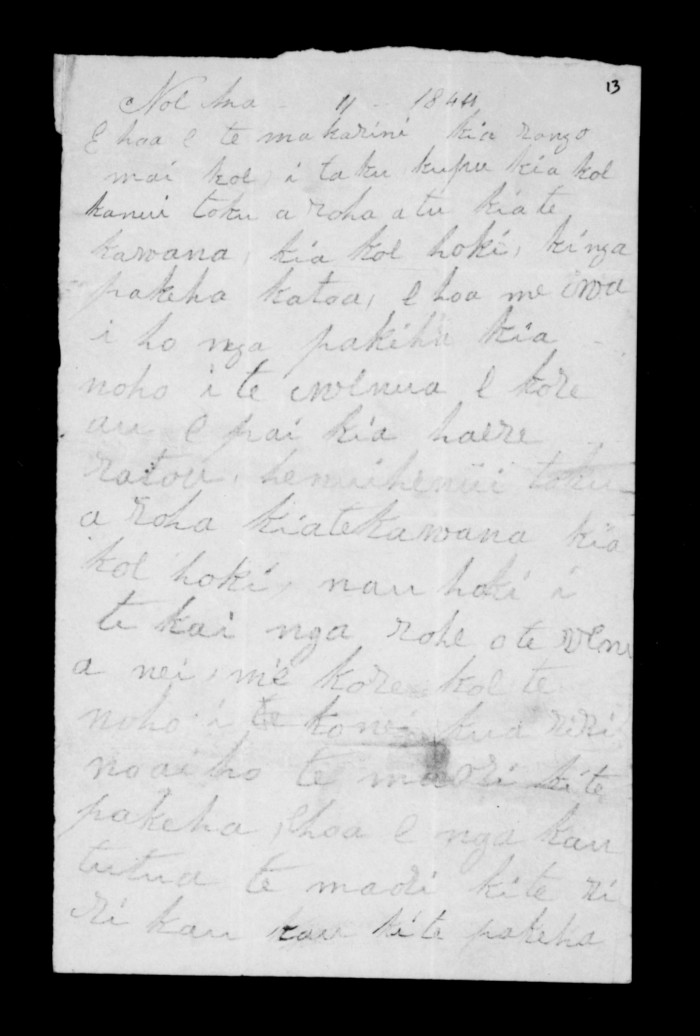 13
Noema - 11 - 1844
E hoa e te makarini kia rongo
mai koe, i taku kupu kia koe
kanui toku a roha atu kiate
kawana, kia koe hoki, kinga
pakeha katoa, e hoa me
i ho nga pakiha kia
noho i te wenua e kore
au e pai kia haere
ratou, henuihenui toku
a roha kiatekawana kia
koe hoki, nau hoki i
te kai nga rohe o te wenu
a nei, me kore koe te
noho i te konei kua riri
noaiho te maori kite
pakeha, ehoa e nga kau
tutua te maori kite ri
ri kau kau kite pakeha